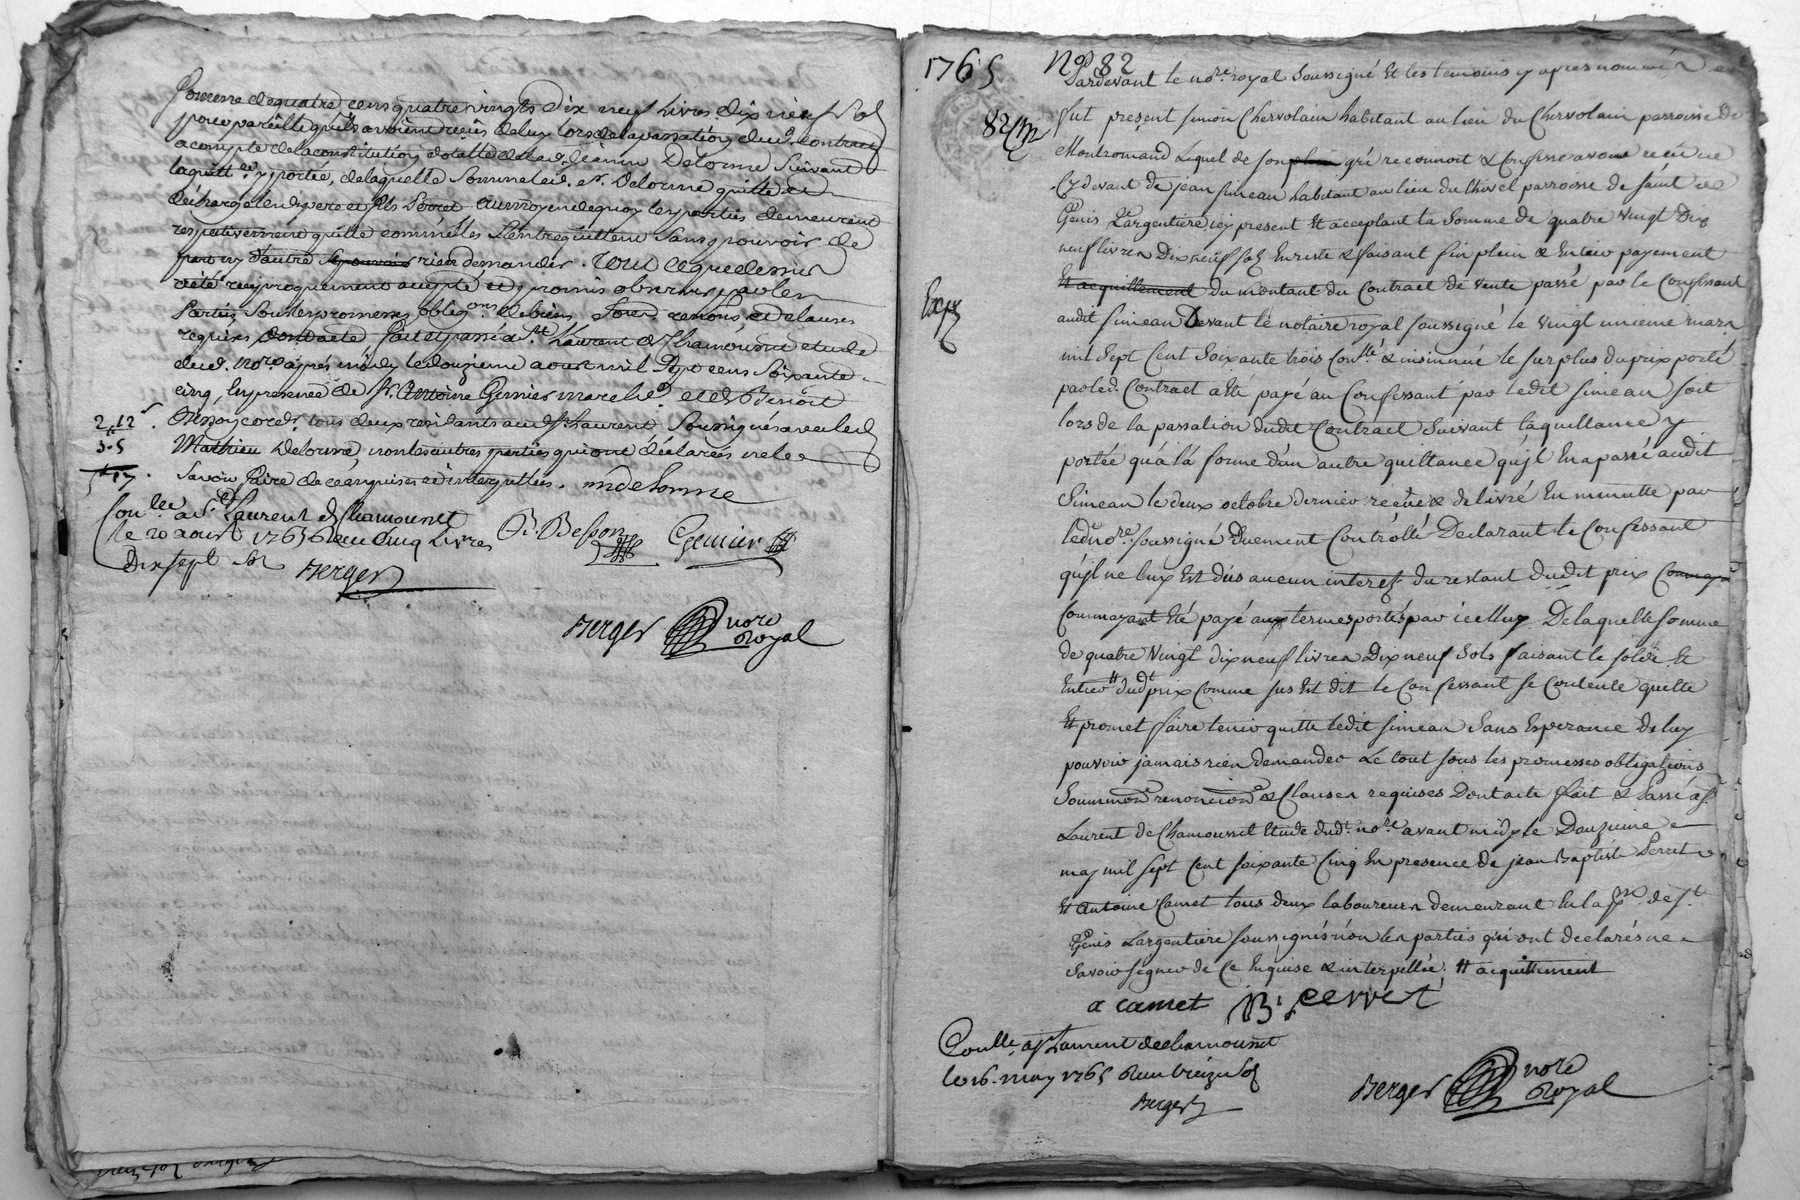 Somme de quatre cens quatre vingts Dix neuf livres dix neuf Sols
pour pareille qu'ils avoient reçus de luy lors de la passation dud. contract
a compte de la constitution dotalle de lad. Jeanne Delorme Suivant
la quitt.ce y portée, de laquelle Somme led. Sr. Delorme quitte et
décharge lesdis pere et fils Au moyen de quoy les parties demeurent
respectivement quitte comme elles S'entrequittent Sans pouvoir de
part ny d'autre rien demander. Tout ce que dessus
a été reciproquement accepté et promis observer par les
Parties Sous les promesses, oblig.ons de biens renons, et clauses
requises Dont acte fait et passé a St. Laurent de Chamousset etude
dud. Nore. après midy le douzieme aoust mil Sept cens Soixante
cinq, En presence de Sr. Antoine Genier march.d et de Benoit
Besson tous deux residants aud. St. Laurent Soussignés avec led.
Mathieu Delorme, non les autres parties qui ont déclarées ne le
Savoir faire de ce enquises et interpellées. m delorme
2.12s.
3-5
5 17.
Con.lée à St. Laurent de Chamousset
le 20 aoust 1765 Reçu Cinq Livres
Dix sept sols Berger
B. Besson Genier
Berger nore
Royal
1765 No. 82
Pardevant le nore. royal Soussigné Et les temoins y après nommés
82
fut present Simon Chervolain habitant au lieu du Chervolain parroisse de
Montromand Lequel de son gré reconnoit & Confesse avoir reçu
Cy devant de jean Simean habitant au lieu du Thivel parroisse de saint
Genis Largentiere icy present Et acceptant la Somme de quatre Vingt Dix
neuf livres Dix neuf sols En reste & faisant fin plein & Entier payement
Et acquittement du montant du Contract de Vente passé par le Confessant
Exp.
audit Simean Devant le notaire royal soussigné le Vingt unieme mars
mil Sept Cent Soixante trois Con.llé & insinué le surplus du prix porté
par led. Contract a Eté payé au Confessant par ledit Simean soit
lors de la passation dudit Contract Suivant la quittance y
portée qu'a la forme d'un autre quittance qu'il En a passé audit
Simean le deux octobre dernier reçüe & delivré En minutte par
led. nore. soussigné Duement Controllé Declarant le Confessant
qu'il ne luy Est dûs aucun interest du restant dudit prix
Comme ayant Eté payé aux termes portés par icelluy De laquelle somme
de quatre Vingt dix neuf livres Dix neuf Sols faisant le solde Et
Entier dudt. prix Comme sus Est dit le Confessant se Contente quitte
Et promet faire tenir quitte ledit Simean Sans Esperance De luy
pouvoir jamais rien demander Le tout sous les promesses obligations
Soummons renoncions & Clauses requises Dont acte Fait & Passé a St.
Laurent de Chamousset Etude dudt. nore. avant midy le Douzieme
may mil sept Cent soixante Cinq En presence de jean Baptiste Perret
Et Antoine Camet tous deux laboureurs demeurant En la psse. de St.
Genis Largentiere soussignés non les parties qui ont declarés ne
Savoir signer de Ce Enquise & interpellée. Et acquittement
a camet JB. Perret
Conllé. a St. Laurent de Chamousset
le 16 may 1765 Reçu treize Sols
Berger
Berger nore
Royal